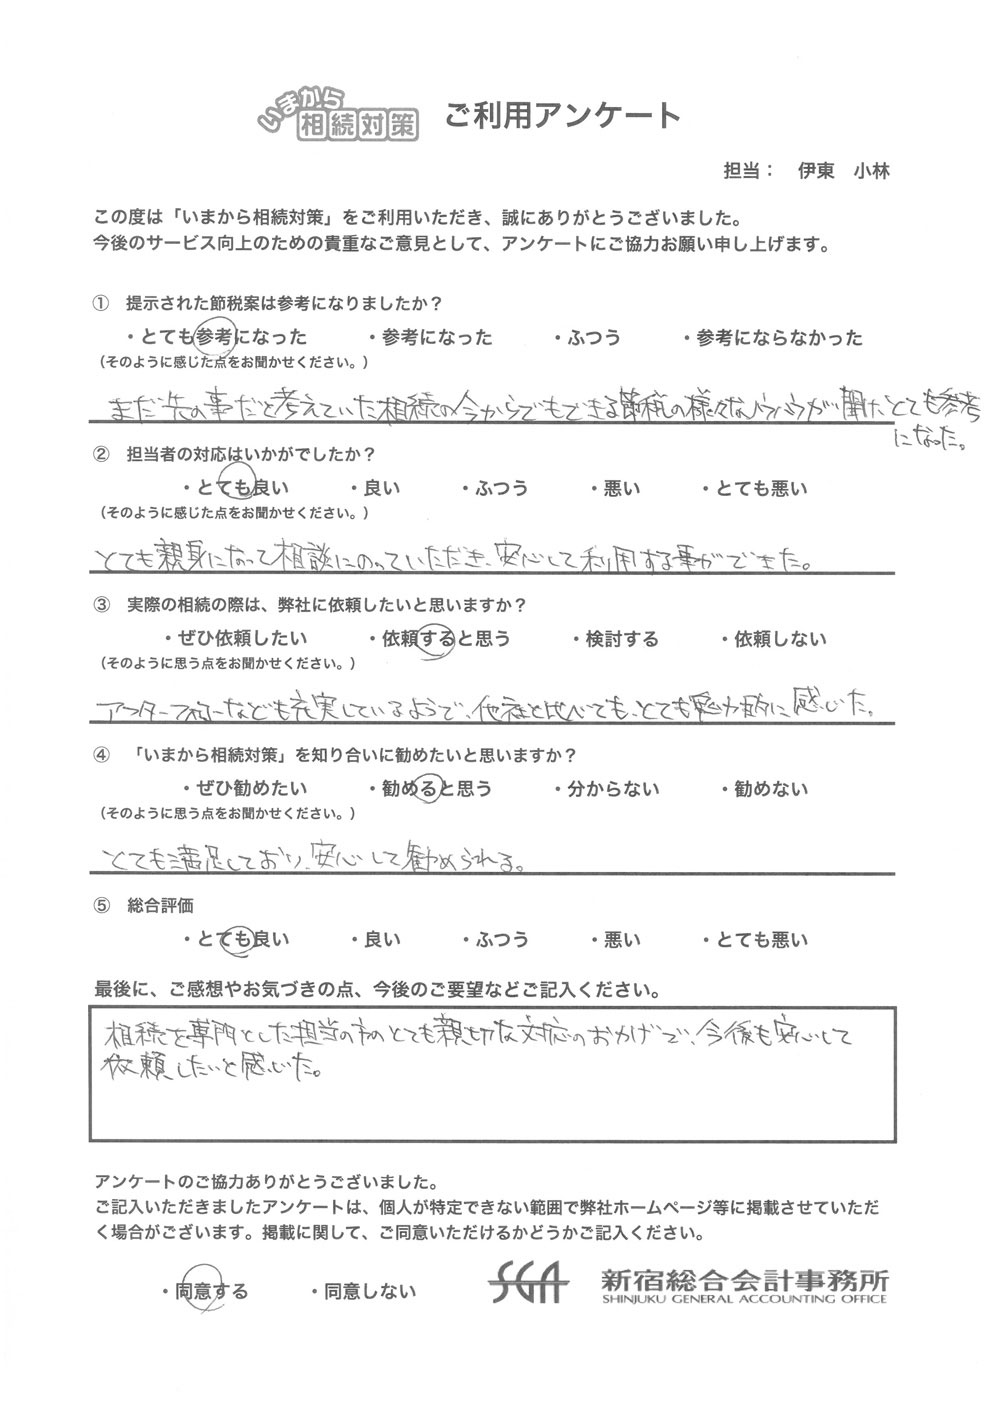 いまから
相続対策 ご利用アンケート
担当： 伊東 小林
この度は「いまから相続対策」をご利用いただき、誠にありがとうございました。
今後のサービス向上のための貴重なご意見として、アンケートにご協力お願い申し上げます。
① 提示された節税案は参考になりましたか？
・とても参考になった ・参考になった ・ふつう ・参考にならなかった
（そのように感じた点をお聞かせください。）
まだ先の事だと考えていた相続の今からでもできる節税の様々なノウハウが聞けとても参考
になった。
② 担当者の対応はいかがでしたか？
・とても良い ・良い ・ふつう ・悪い ・とても悪い
（そのように感じた点をお聞かせください。）
とても親身になって相談にのっていただき、安心して利用する事ができた。
③ 実際の相続の際は、弊社に依頼したいと思いますか？
・ぜひ依頼したい ・依頼すると思う ・検討する ・依頼しない
（そのように思う点をお聞かせください。）
アフターフォローなども充実しているようで、他社と比べても、とても魅力的に感じた。
④ 「いまから相続対策」を知り合いに勧めたいと思いますか？
・ぜひ勧めたい ・勧めると思う ・分からない ・勧めない
（そのように思う点をお聞かせください。）
とても満足しており、安心して勧められる。
⑤ 総合評価
・とても良い ・良い ・ふつう ・悪い ・とても悪い
最後に、ご感想やお気づきの点、今後のご要望などご記入ください。
相続を専門とした担当の方のとても親切な対応のおかげで、今後も安心して
依頼したいと感じた。
アンケートのご協力ありがとうございました。
ご記入いただきましたアンケートは、個人が特定できない範囲で弊社ホームページ等に掲載させていただ
く場合がございます。掲載に関して、ご同意いただけるかどうかご記入ください。
・同意する ・同意しない SGA 新宿総合会計事務所
SHINJUKU GENERAL ACCOUNTING OFFICE